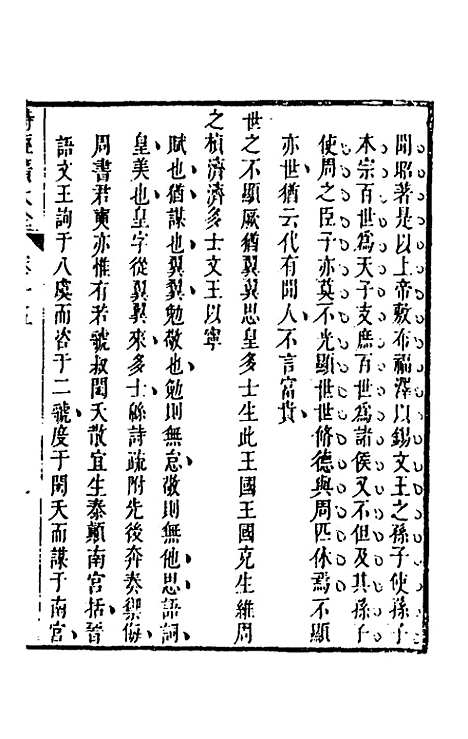 聞昭著是以上帝敷布福澤以錫文王之孫子使孫子
本宗百世爲天子支庶百世爲諸侯又不但及其孫子
使周之臣子亦莫不光顯世世脩德與周匹休焉不顯
亦世猶云代有聞人不言富貴
世之不顯厥猶翼翼思皇多士生此王國王國克生維周
之楨濟濟多士文王以寧
賦也猶謀也翼翼勉敬也勉則無怠敬則無他思語詞
皇美也皇字從翼翼來多士緜詩疏附先後奔奏禦侮
周書君奭亦惟有若虢叔閎夭散宜生泰顚南宮括晉
語文王詢于八虞而咨于二虢度于閎夭而謀于南宮
詩經廣大全 卷十五